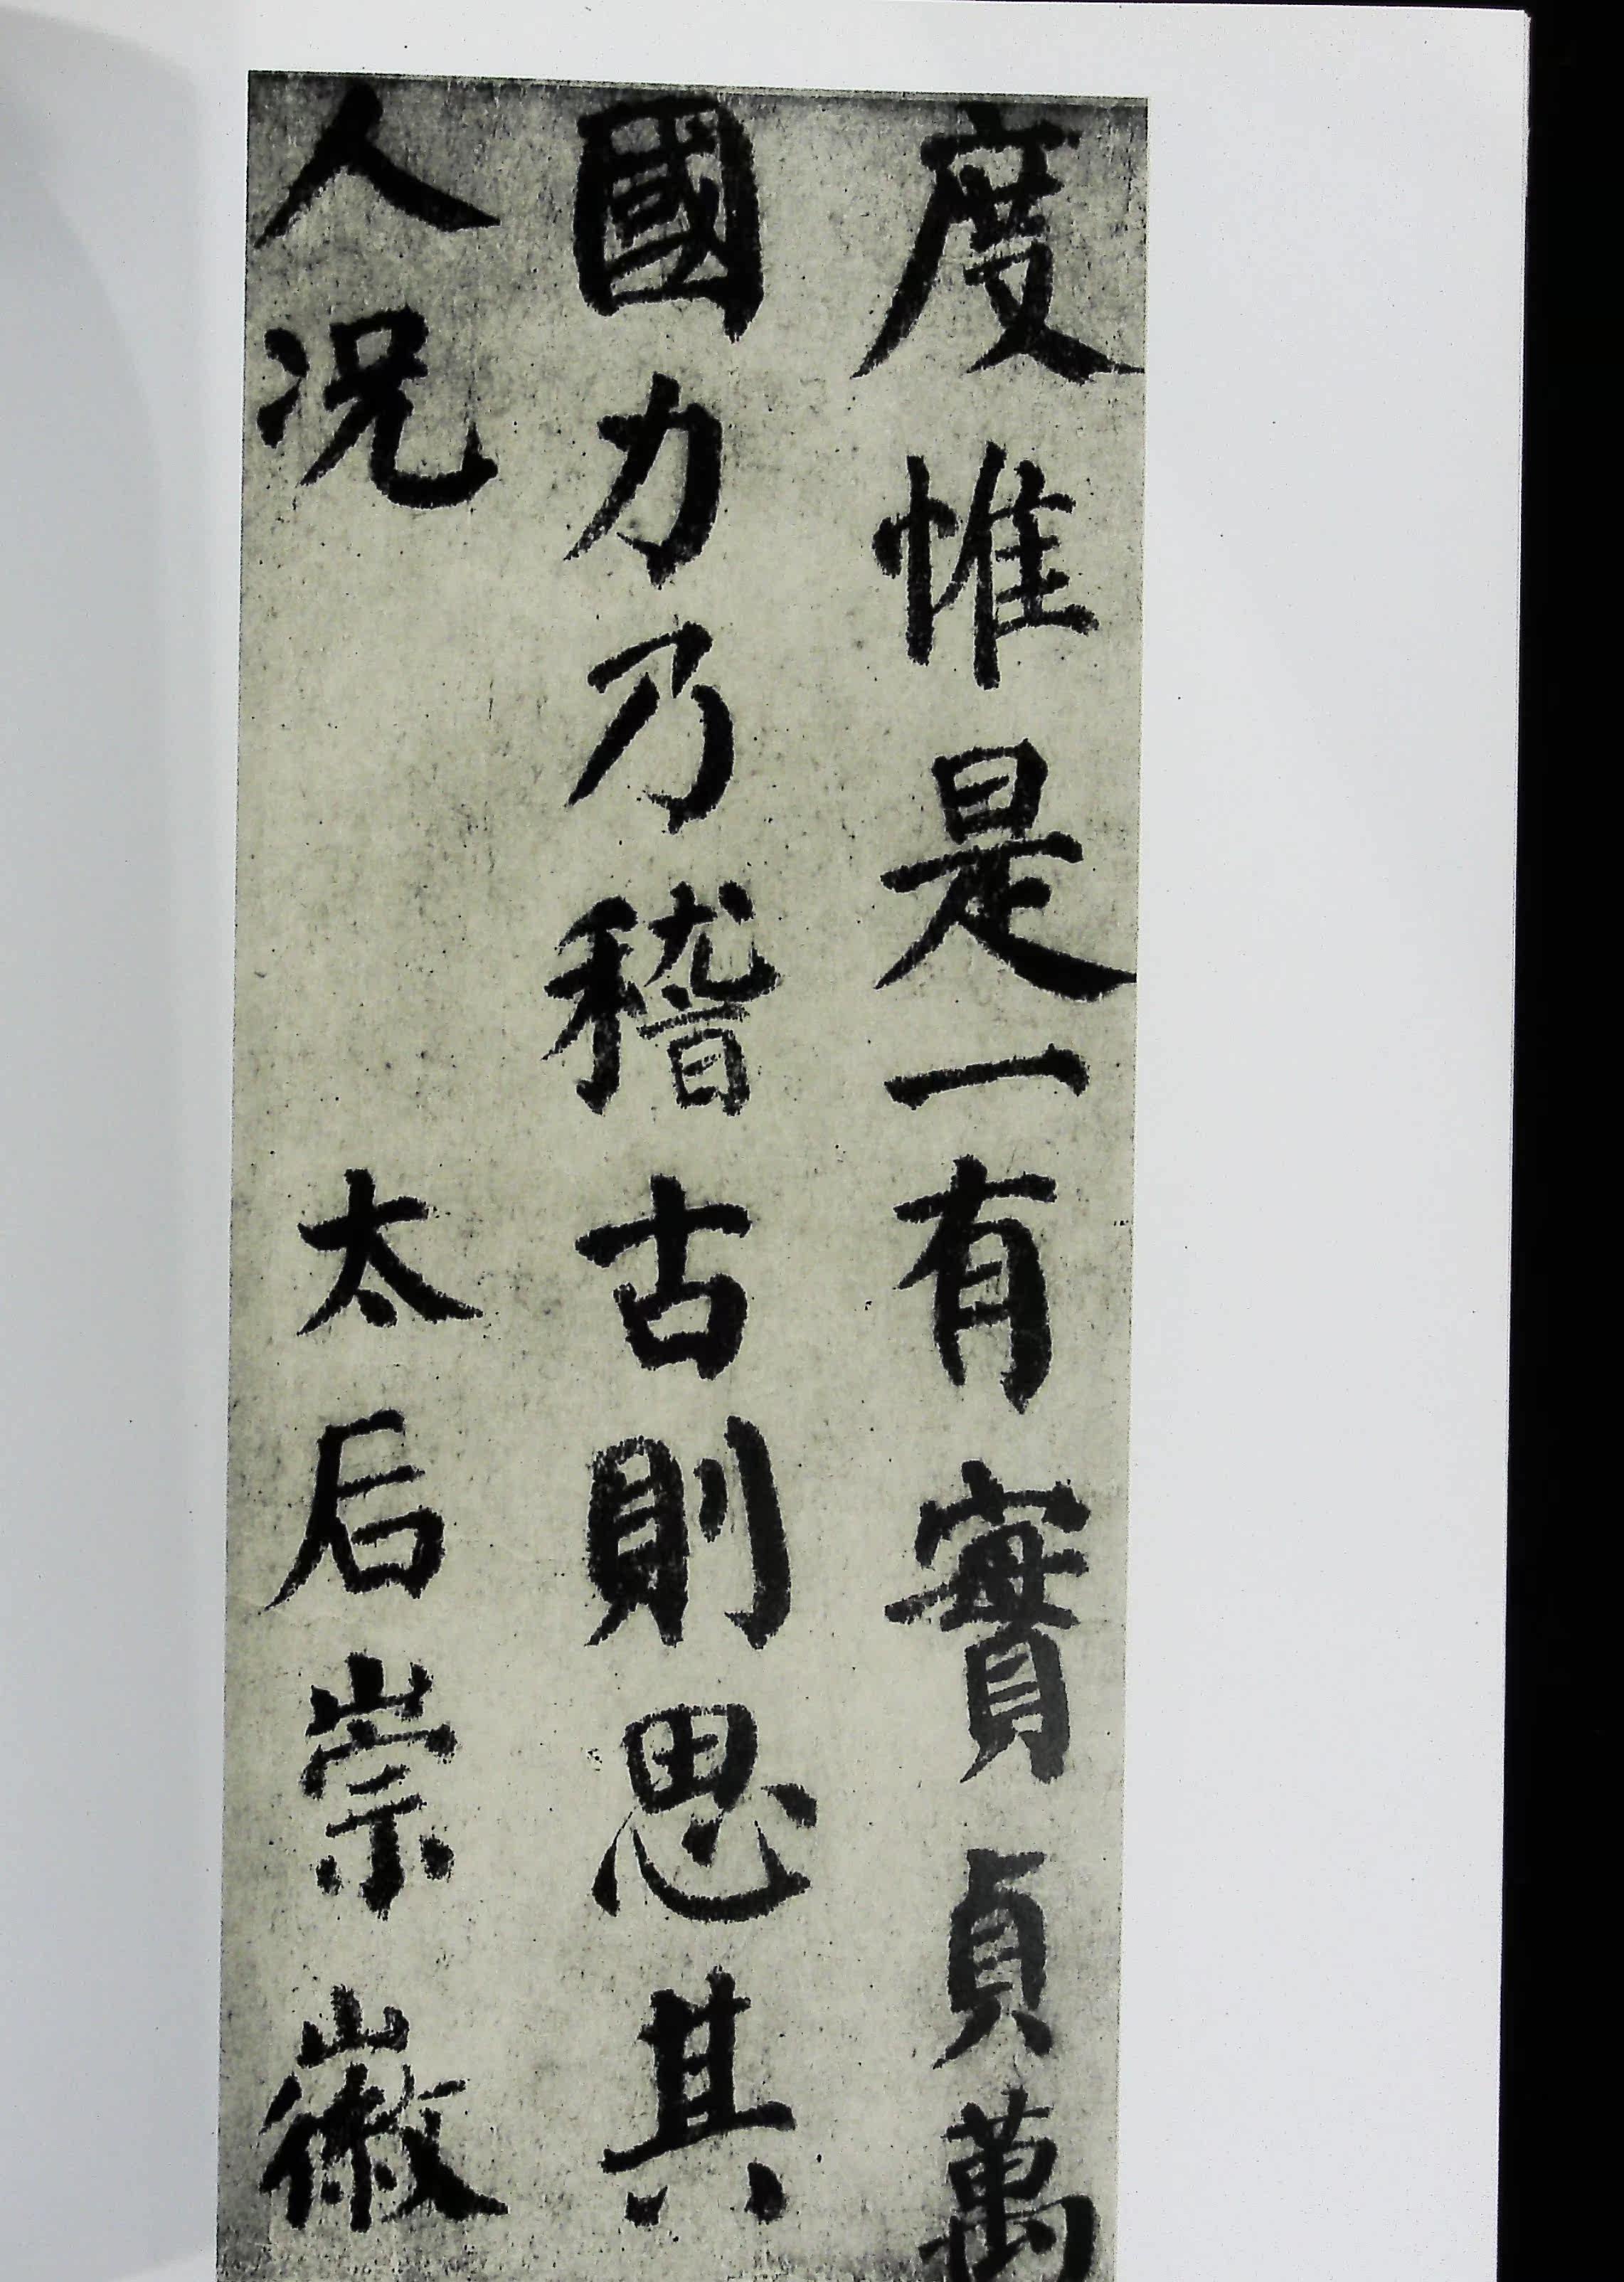 度惟是一有實貞萬
國力乃稽古則思其
人况　太后崇徽